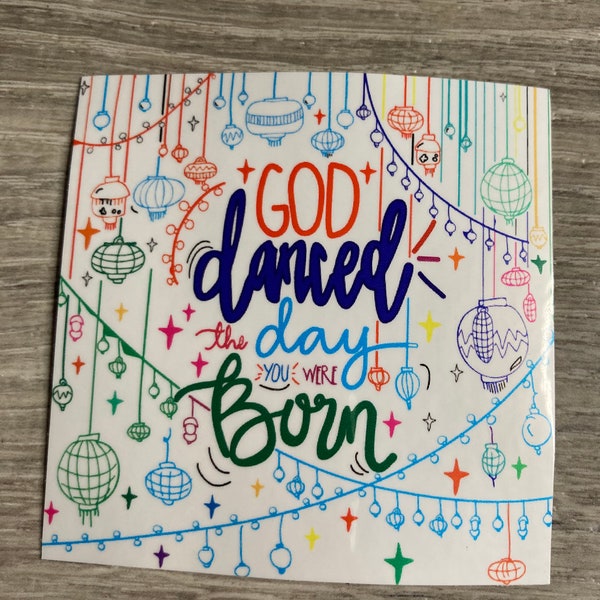 GOD
danced
the day
YOU WERE
Born